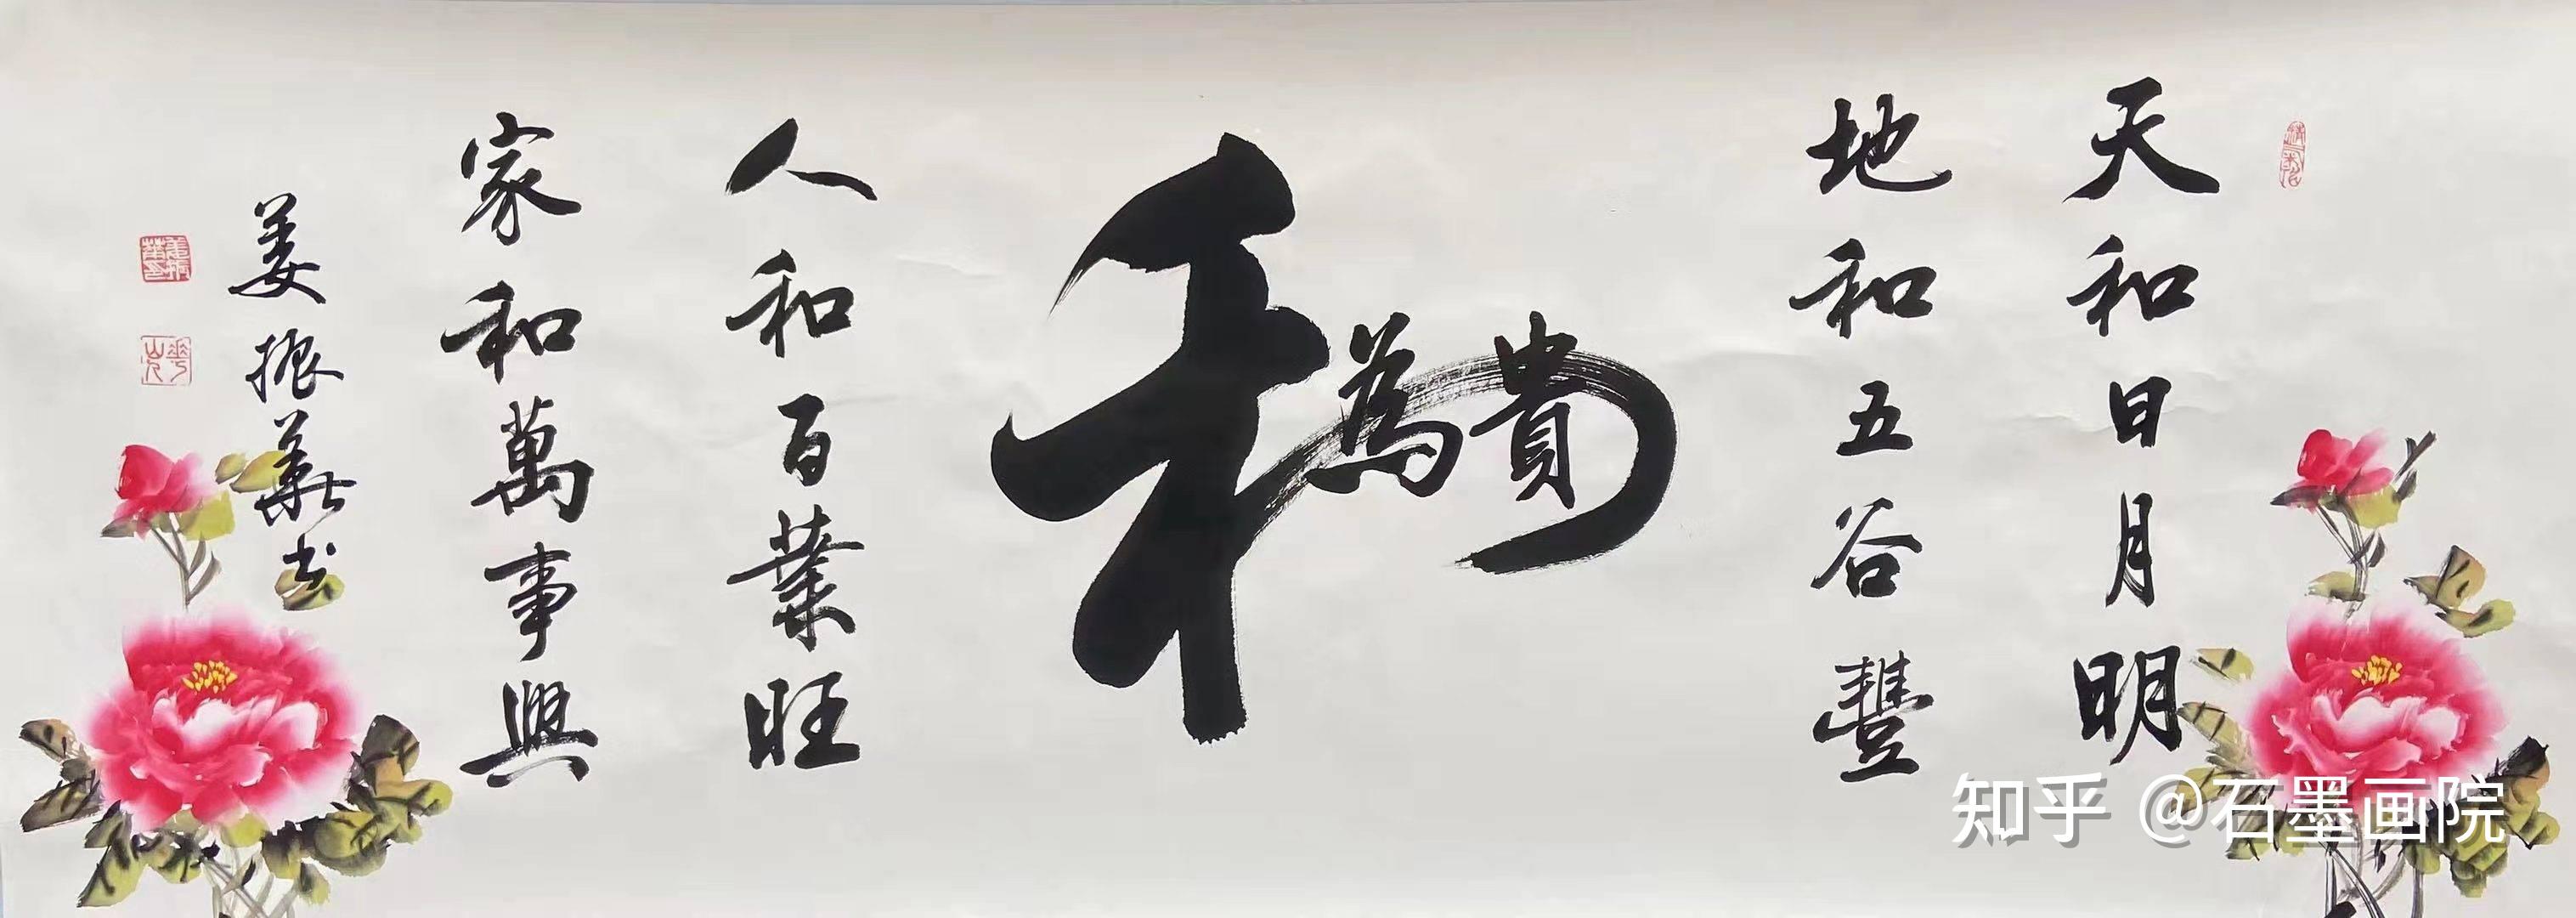 天和日月明
地和五谷豐
和為貴
人和百業旺
家和萬事興
姜振華书
姜振華印
知乎 @石墨画院